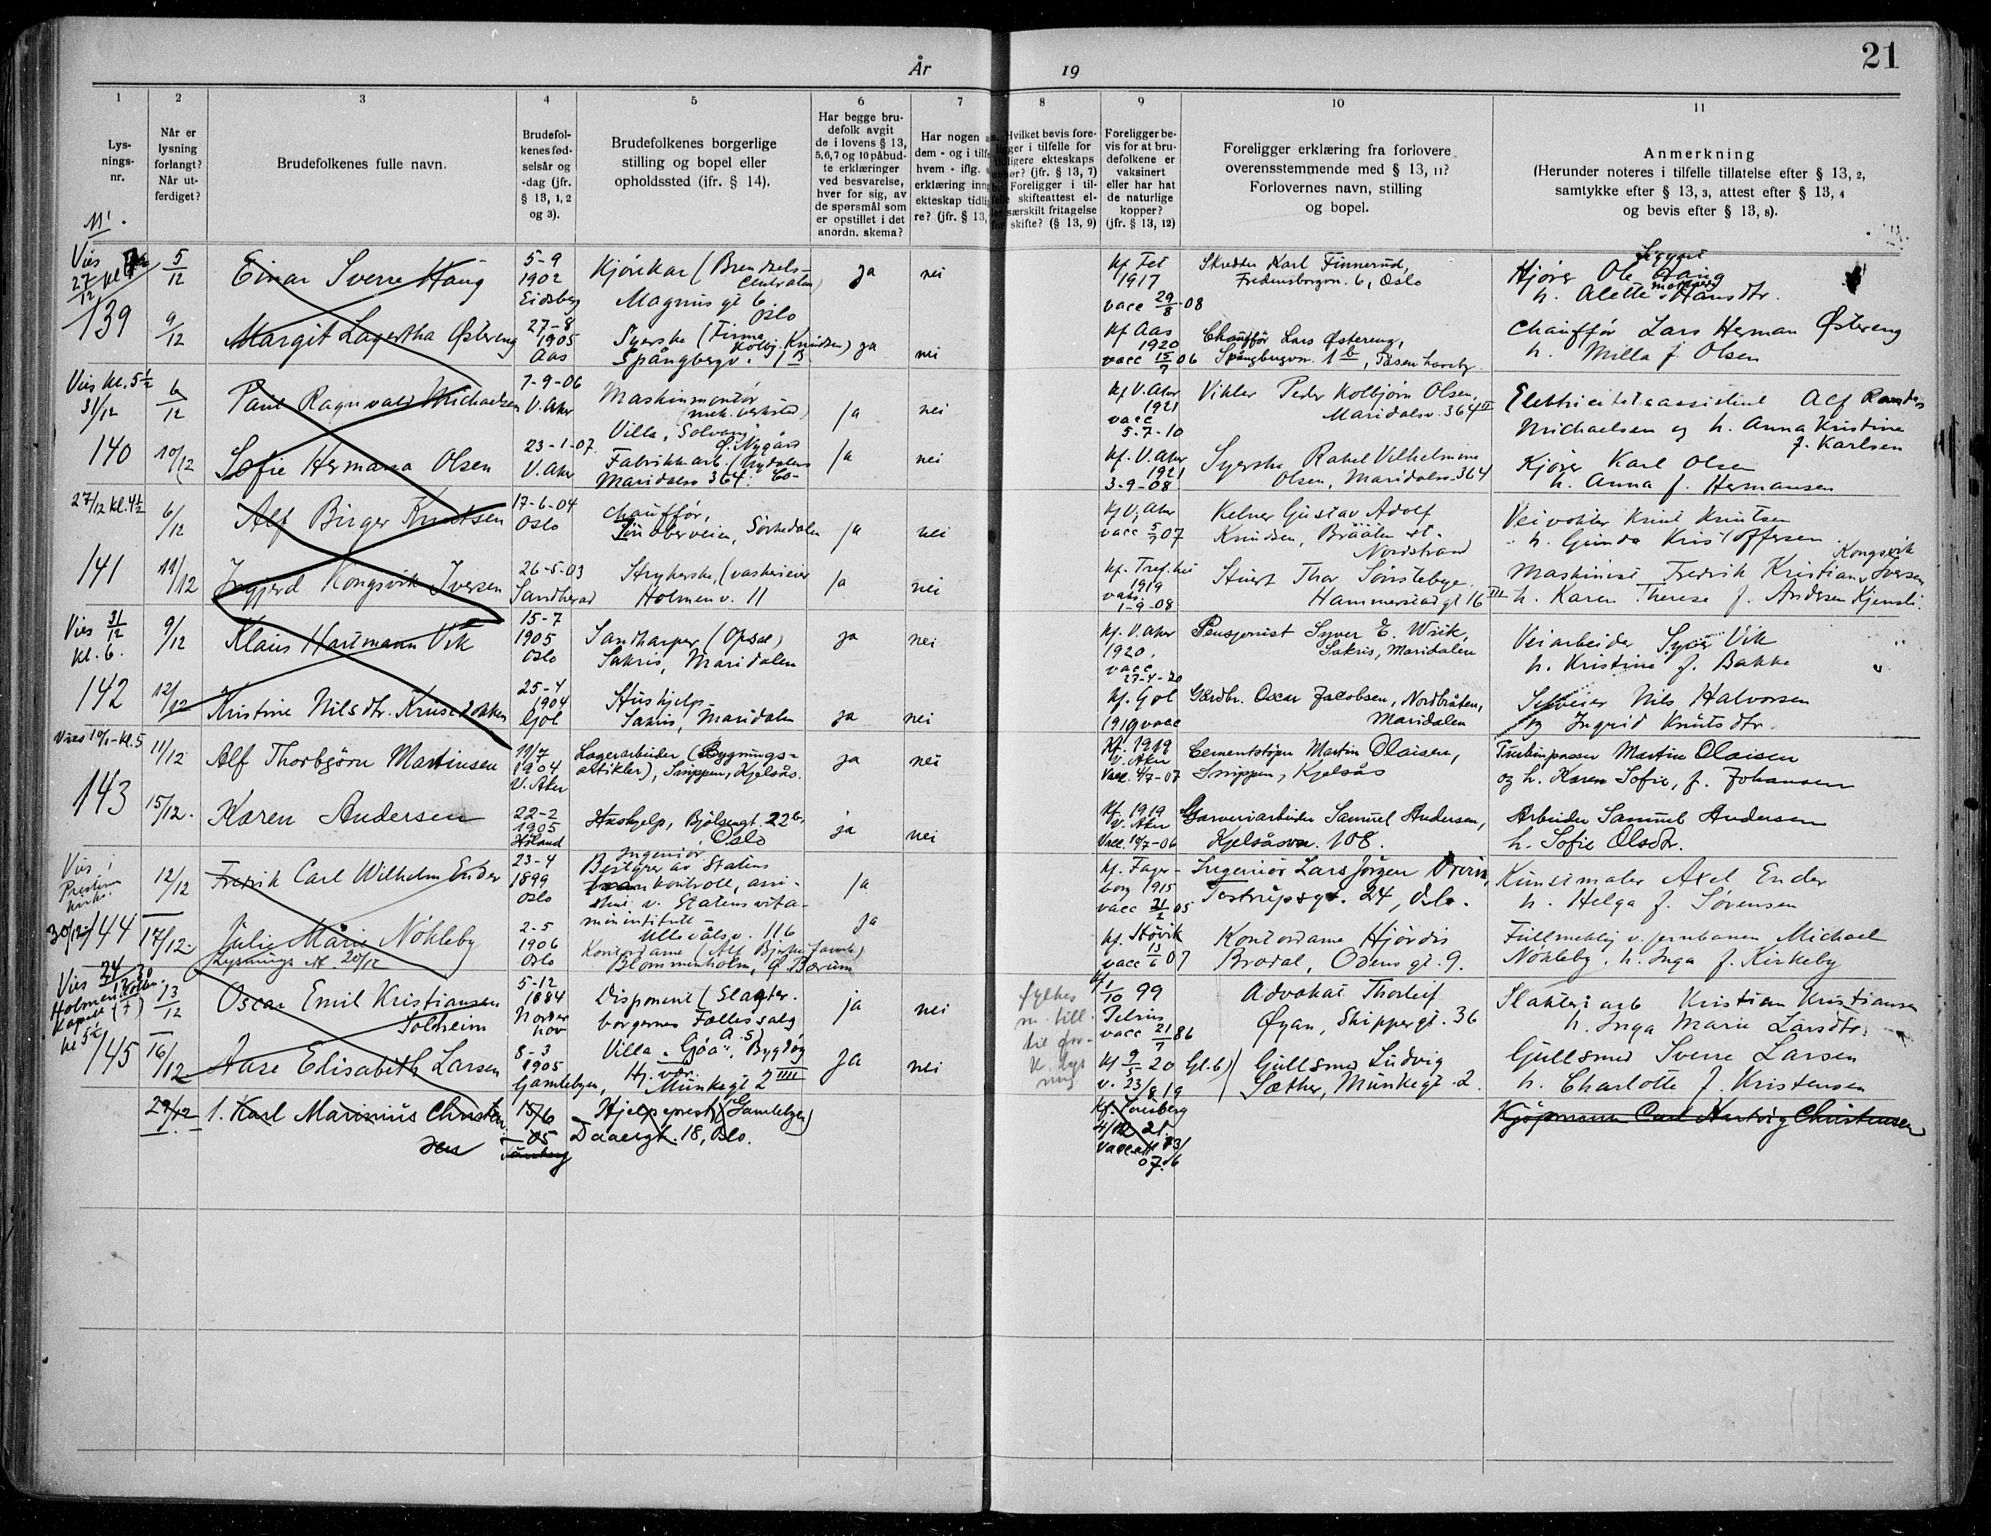 År 19
21
1 2 3 4 5 6 7 8 9 10 11
Lys-
nings-
nr.
Når er
lysning
forlangt?
Når ut-
ferdiget?
Brudefolkenes fulle navn.
Brudefol-
kenes fød-
selsår og
-dag (jfr.
§ 13, 1, 2
og 3).
Brudefolkenes borgerlige
stilling og bopel eller
opholdssted (ifr. § 14).
Har begge bru-
defolk avgit
de i lovens § 13,
5,6,7 og 10 påbud-
te erklæringer
ved besvarelse,
hver for sig, av
de spørsmål som
er opstillet i det
anordn. skema?
Har nogen
dem - og i tilfe
hvem - iflg.
erklæring inng
ekteskap tidli
re? (jfr. § 13,
Hvilket bevis fore-
ligger i tilfelle for
tidligere ekteskaps
ophør? (jfr. § 13, 7)
Foreligger i til-
felle skifteattest el-
særskilt fritagelse
for skifte? (§ 13, 9)
Foreligger be-
vis for at bru-
defolkene er
vaksinert
eller har hat
de naturlige
kopper?
(jfr. § 13, 12)
Foreligger erklæring fra forlovere
overensstemmende med § 13, 11?
Forlovernes navn, stilling
og bopel.
Anmerkning
(Herunder noteres i tilfelle tillatelse efter § 13, 2,
samtykke efter § 13, 3, attest efter § 13, 4
og bevis efter § 13, 8).
Vies
27/12 kl
139
5/12
Einar Sverre Haug
5-9
1902
Eidsberg
Kjørekar (Brendsels-
centralen)
Magnus gt 6
Oslo
ja
nei
kf Fet
1917
vacc 29/8-08
Skredder Karl Finnerud,
Fredensborgvn. 6, Oslo
Kjører Ole Haug
h. Alette Hansdtr.
9/12
Margit Lagertha Østereng
27-8
1905
Aas
Syerske (Firma
Kolbj. Knudsen)
Spångbergv. 1 B
ja
nei
kf Aas
1920
vacc 15/7 06
Chauffør Lars Østereng,
Spångbergvn. 1b, Taasen haveby
Chauffør Lars Herman Østereng
h. Milla f. Olsen
Vies kl. 5½
31/12
140
6/12
Paul Ragnvald Michaelsen
7-9-06
V. Aker
Maskinmontør
(mek. verksted)
Villa „Solvang”
ja
nei
kf. V. Aker
1921
vacc
5-7-10
Vikler Peder Kolbjørn Olsen,
Maridalsv. 364 II
Elektricitetsassistent Alf
Michaelsen og h. Anna Kristine
f. Karlsen
10/12
Sofie Hermana Olsen
23-1-07
V. Aker
Fabrikkarb. (Nydalens
Co-
Maridalsv 364.
ja
nei
kf. V. Aker
1921
3-9-08
Syerske Rakel Vilhelmine
Olsen, Maridalsv. 364
Kjører Karl Olsen
h. Anna f. Hermansen
27/12 kl. 4½
141
6/12
Alf Birger Knutsen
17-6-04
Oslo
chauffør,
Sørkedalen
ja
nei
kf V. Aker
vacc 5/7 07
Kelner Gustav Adolf
Knudsen, Brååten st.
Nordstrand
Veivokter Knut Knutsen
h. Gunda Kristoffersen
11/12
Ingjerd Kongsvik Iversen
26-5-03
Sandherad
Strykerske, (vaskerieier
Holmenv. 11
ja
nei
1919
1-9-08
Stuert Thor Sørslebye
Hammerstadgt 16 III
Kongsvik
Maskinist Fredrik Kristian Iversen
h. Karen Therese f. Andersen
Vies 31/12
kl. 6.
142
9/12
Klaus Hartmann Vik
15-7
1905
Oslo
Santharper (Opsal)
Sakris, Maridalen
ja
nei
kf. V. Aker
1920.
vacc
27-4-20
Pensjonist Syver E. Wiik,
Sakris, Maridalen
Veiarbeider Syver Vik
h. Kristine f. Bakke
12/12
Kristine Nilsdtr. Krusedokken
25-4
1904
Gol
Hushjelp-
Sakris, Maridalen
ja
nei
kf. Gol
1919 vacc
Gårdbr. Oscar Jacobsen, Nordbråten,
Maridalen
Selveier Nils Halvorsen
og Ingrid Knuts dtr.
Vies 10/1-kl. 5
143
11/12
Alf Thorbjørn Martinsen
11/7
1904
V. Aker
Lagerarbeider (Bygnings-
artikler), Snippen, Kjelsås.
ja
nei
Kf. 1919
V. Aker
Vacc. 4/7-07
Cementstøper Martin Olaisen,
Snippen, Kjelsås
Turbinpasser Martin Olaisen
og h. Karen Sofie, f. Johansen
15/12.
Karen Andersen
22-2
1905
Høland
Hushjelp, Bjølsengt. 22b,
Oslo
ja
nei
Kf. 1919
V. Aker
Vacc. 10/7-06
Garveriarbeider Samuel Andersen,
Kjelsåsvn. 108.
Arbeider Samuel Andersen
h. Sofie Olsdtr.
Vies i
kirke
30/12
144
12/12
Fredrik Carl Wilhelm Ender
23-4
1899
Oslo
Ingeniør
Bestyrer av Statens
kontroll, assi-
stent v. Statens vita-
mininstitutt -
Ullevålsv. 116
ja
kf. Fager-
borg 1915
vacc 21/2 05
Ingeniør Lars Jörgen
Testrupsgt. 24, Oslo.
Kunstmaler Axel Ender
h. Helga f. Sørensen
17/12
Julie Marie Nökleby
Lysnings At. 20/12
2-5
1906
Oslo
Kontordame (Alf Bjerke
Blommenholm, Ø. Bærum
ja
kf. Høvik
vacc 13/6 07
Kontordame Hjördis
Brodal, Odins gt. 9.
Fullmektig v. jernbanen Michael
Nökleby, h. Inga f. Kirkeby
Vies
Holmen
Kapell
kl 5½
145
13/12
Oscar Emil Kristiansen
Solheim
5-12
1884
Norder
hov
Disponent (Slagter-
borgernes Fælles salg
A.S)
Villa „Gjøa”, Bygdøy
ja
nei
fylkes
m. till.
til for-
k. lys
ning
kf 1/10 99
Petrus
vacc 21/7 86
Advokat Thorleif
Øyan, Skippergt. 36
Slakteri arb Kristian Kristiansen
h. Inga Marie Larsdtr.
16/12
Aase Elisabeth Larsen
8-3
1905
Gamlebyen,
Hj. vær.
Munkegt 2 IIII
ja
nei
kf 9/5 20 (Gl.b)
v. 23/8 19
Gullsmed Ludvig
Sæther, Munkegt. 2.
Gullsmed Sverre Larsen
h. Charlotte f. Kristensen
29/12
1. Karl Marinius Christen
sen
15/6
-05
Tönsberg
Hjelpeprest (Gamlebyen)
Daaesgt. 18, Oslo.
Kf. Tönsberg
4/12 21.
Kjöpmann Carl Hartvig Christensen